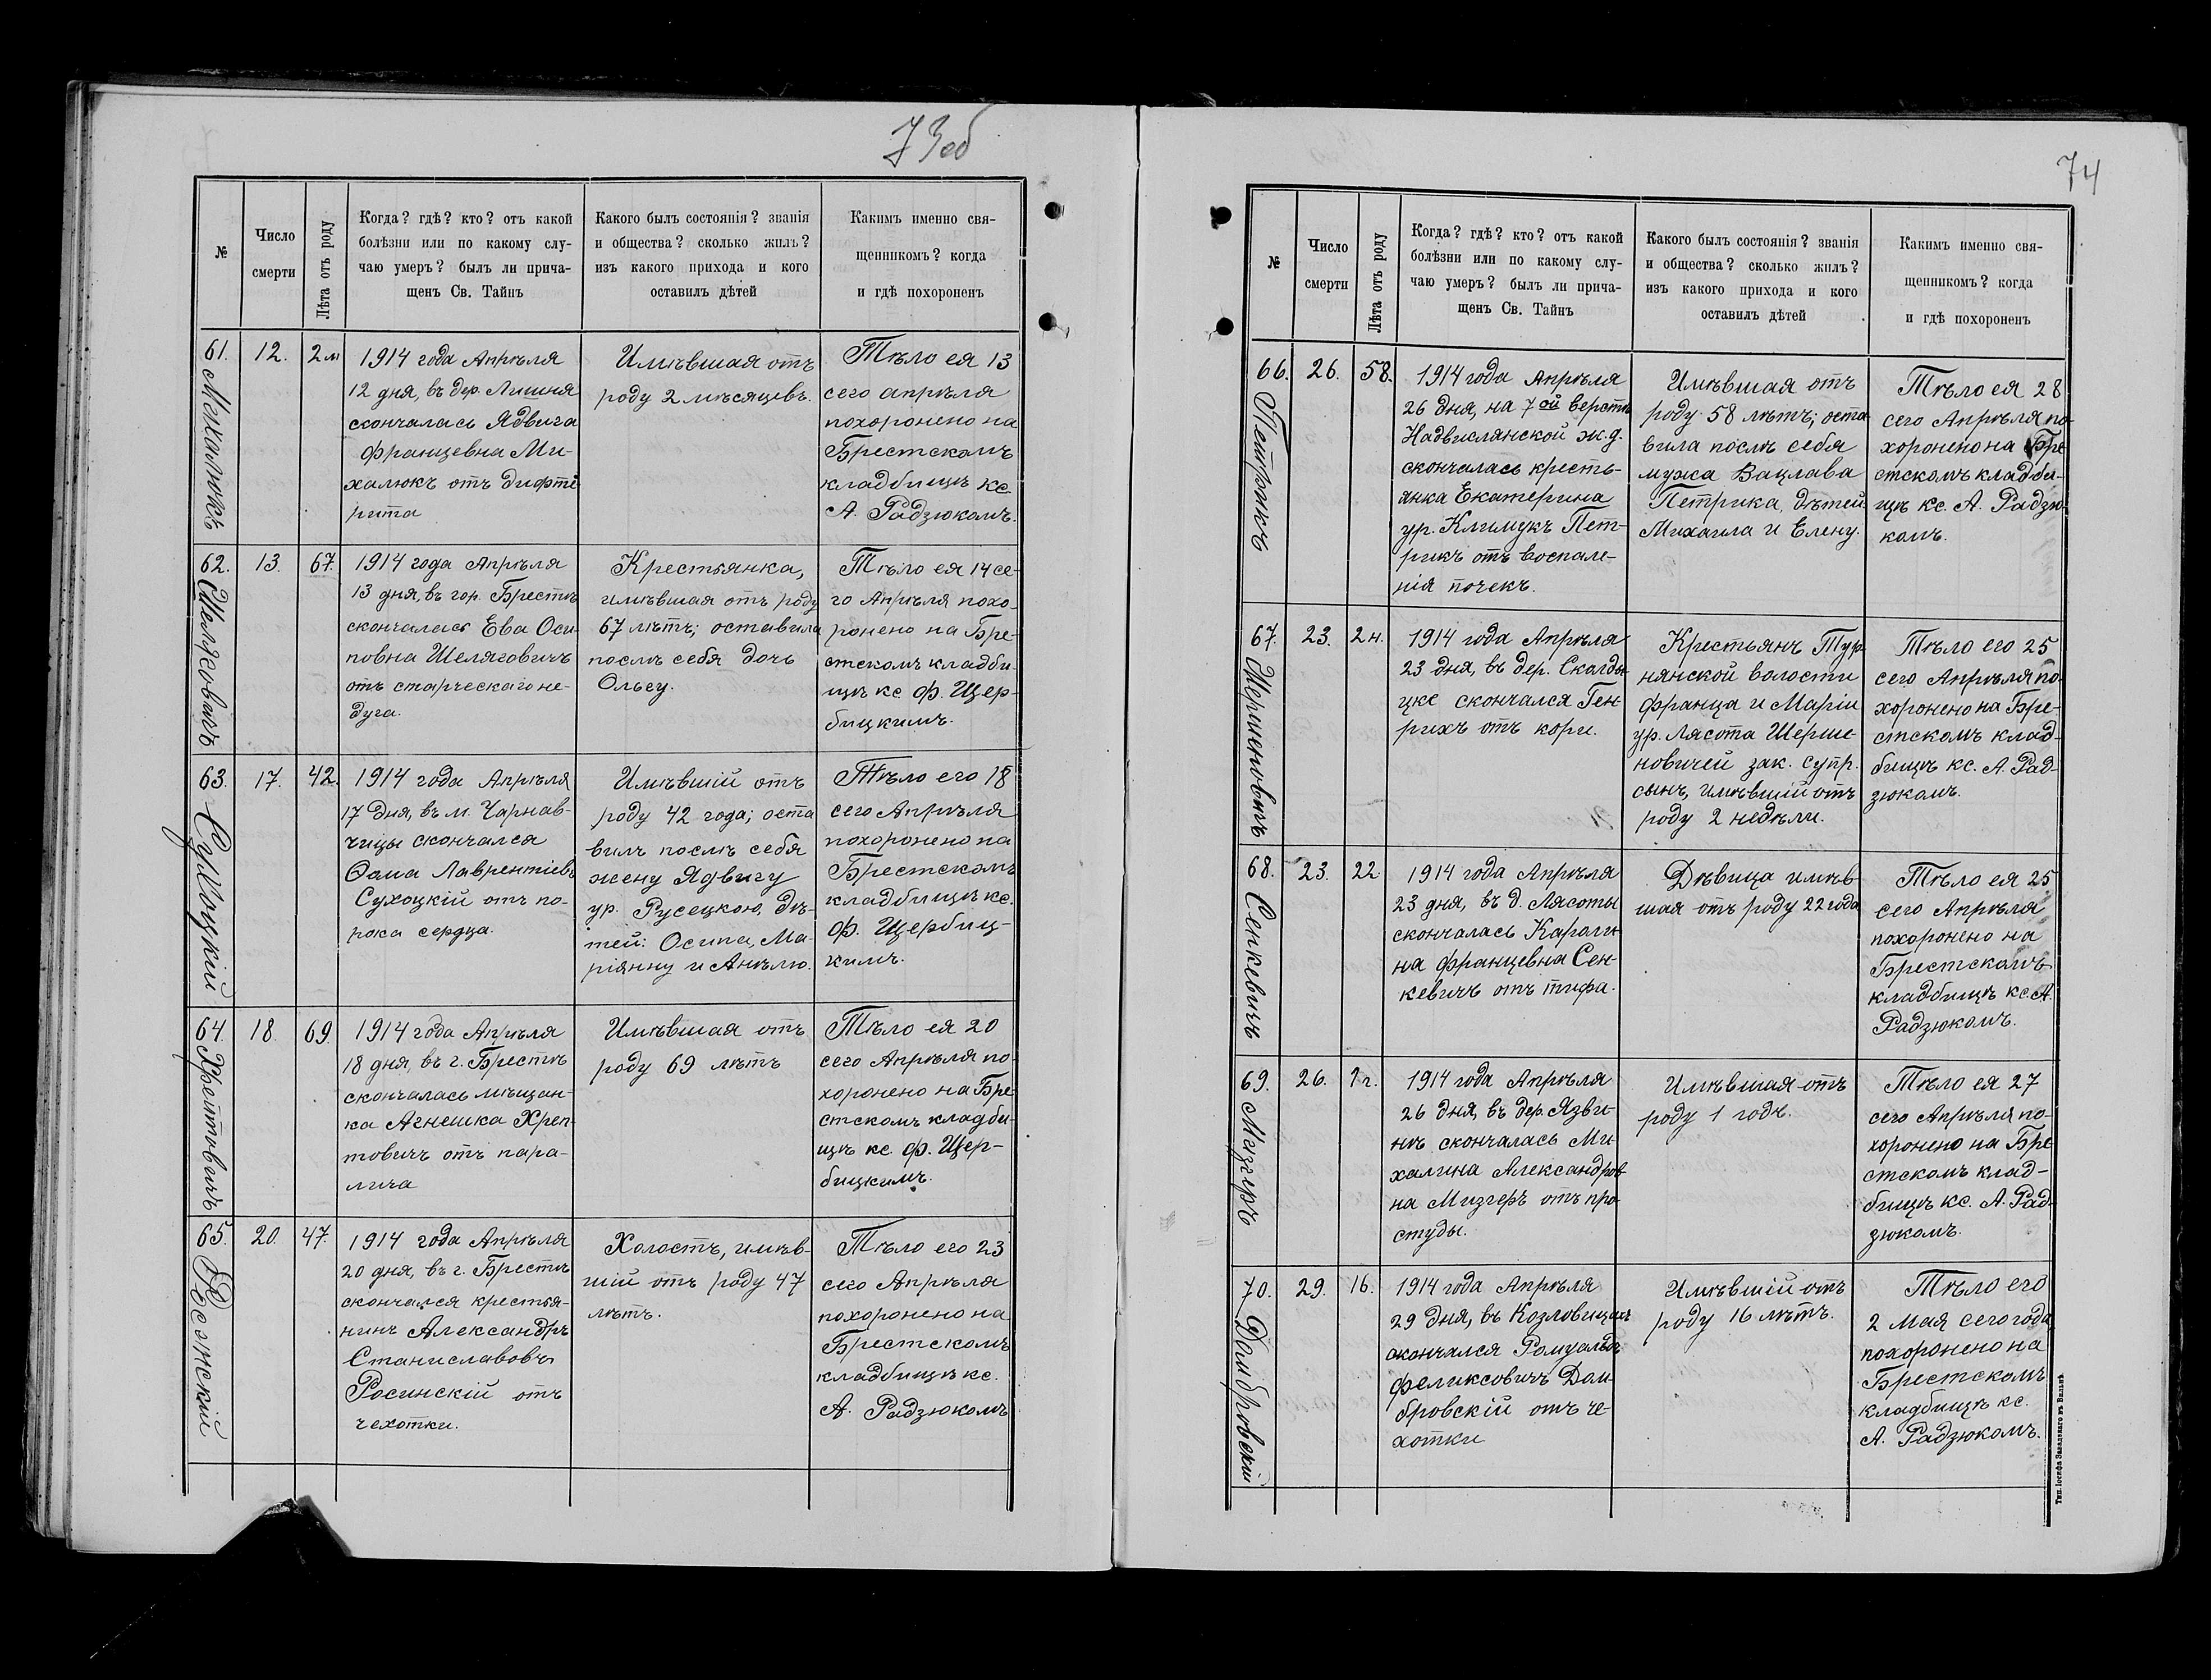 73об
№
Число
смерти
Лѣта отъ роду
Когда? гдѣ? кто? отъ какой
болѣзни или по какому слу-
чаю умеръ? былъ ли прича-
щенъ Св. Тайнъ
Какого былъ состоянія? званія
и общества? сколько жилъ?
изъ какого прихода и кого
оставилъ дѣтей
Какимъ именно свя-
щенникомъ? когда
и гдѣ похороненъ
61.
Михалюкъ
12.
2 м
1914 года Апрѣля
12 дня, въ дер. Лишня
скончалась Ядвига
Францевна Ми-
халюкъ отъ дифте
рита
Имѣвшая отъ
роду 2 мѣсяцевъ.
Тѣло ея 13
сего апрѣля
похоронено на
Брестскомъ
кладбищѣ кс.
А. Радзюкомъ.
62.
Шеляговичъ
13.
67.
1914 года Апрѣля
13 дня, въ гор. Брестѣ
скончалась Ева Оси
повна Шеляговичъ
отъ старческаго не-
дуга.
Крестьянка,
имѣвшая отъ роду
67 лѣтъ; оставила
послѣ себя дочь
Ольгу.
Тѣло ея 14 се-
го Апрѣля похо-
ронено на Бре-
стскомъ кладби-
щѣ кс. Ф. Щер-
бицкимъ.
63.
Сухоцкій
17.
42.
1914 года Апрѣля
17 дня, въ м. Чарнав-
чицы скончался
Ѳома Лаврентіевъ
Сухоцкій отъ по-
рока сердца.
Имѣвшій отъ
роду 42 года; оста
вилъ послѣ себя
жену Ядвигу
ур. Русецкою, дѣ-
тей: Осипа, Ма-
ріянну и Анѣлю.
Тѣло его 18
сего Апрѣля
похоронено на
Брестскомъ
кладбищѣ кс.
Ф. Щербиц-
кимъ.
64.
Хрептовичъ
18.
69.
1914 года Апрѣля
18 дня, въ г. Брестѣ
скончалась мѣщан-
ка Агнешка Хреп-
товичъ отъ пара-
лича
Имѣвшая отъ
роду 69 лѣтъ
Тѣло ея 20
сего Апрѣля по-
хоронено на Бре-
стскомъ кладби-
щѣ кс. Ф. Щер-
бицкимъ.
65.
Росинскій
20.
47.
1914 года Апрѣля
20 дня, въ г. Брестѣ
скончался крестья-
нинъ Александръ
Станиславовъ
Росинскій отъ
чехотки.
Холостъ, имѣв-
шій отъ роду 47
лѣтъ.
Тѣло его 23
сего Апрѣля
похоронено на
Брестскомъ
кладбищѣ кс.
А. Радзюкомъ
74
№
Число
смерти
Лѣта отъ роду
Когда? гдѣ? кто? отъ какой
болѣзни или по какому слу-
чаю умеръ? былъ ли прича-
щенъ Св. Тайнъ
Какого былъ состоянія? званія
и общества? сколько жилъ?
изъ какого прихода и кого
оставилъ дѣтей
Какимъ именно свя-
щенникомъ? когда
и гдѣ похороненъ
66.
Петрикъ
26.
58.
1914 года Апрѣля
26 дня, на 7ой верстѣ
Надвислянской ж.д.
скончалась кресть-
янка Екатерина
ур. Климукъ Пет-
рикъ отъ воспале-
нія почекъ.
Имѣвшая отъ
роду 58 лѣтъ; оста
вила послѣ себя
мужа Вацлава
Петрика, дѣтей:
Михаила и Елену.
Тѣло ея 28
сего Апрѣля по-
хоронено на Бре
стскомъ кладби-
щѣ кс. А. Радзю-
комъ.
67.
Шершеновичъ
23.
2 н.
1914 года Апрѣля
23 дня, въ дер. Сколды
цке скончался Ген-
рихъ отъ кори.
Крестьянъ Тур-
нянской волости
Франца и Маріи
ур. Лясота Шерше-
новичей зак. супр.
сынъ, имѣвшій отъ
роду 2 недѣли.
Тѣло его 25
сего Апрѣля по-
хоронено на Бре-
стскомъ клад-
бищѣ кс. А. Рад-
зюкомъ.
68.
Сенкевичъ
23.
22
1914 года Апрѣля
23 дня, въ д. Лясоты
скончалась Кароли-
на Францевна Сен-
кевичъ отъ тифа.
Дѣвица имѣв-
шая отъ роду 22 года
Тѣло ея 25
сего Апрѣля
похоронено на
Брестскомъ
кладбищѣ кс. А.
Радзюкомъ.
69.
Мизгеръ
26.
1 г.
1914 года Апрѣля
26 дня, въ дер. Язви-
нѣ скончалась Ми-
халина Александров
на Мизгеръ отъ про-
студы.
Имѣвшая отъ
роду 1 годъ.
Тѣло ея 27
сего Апрѣля по-
хоронено на Бре-
стскомъ клад-
бищѣ кс. А. Рад-
зюкомъ.
70.
Домбровскій
29.
16.
1914 года Апрѣля
29 дня, въ Козловищахъ
скончался Ромуальдъ
Феликсовичъ Дом-
бровскій отъ че-
хотки
Имѣвшій отъ
роду 16 лѣтъ.
Тѣло его
2 Мая сего года
похоронено на
Брестскомъ
кладбищѣ кс.
А. Радзюкомъ.
Тип. Іосифа Завадзкаго въ Вильнѣ